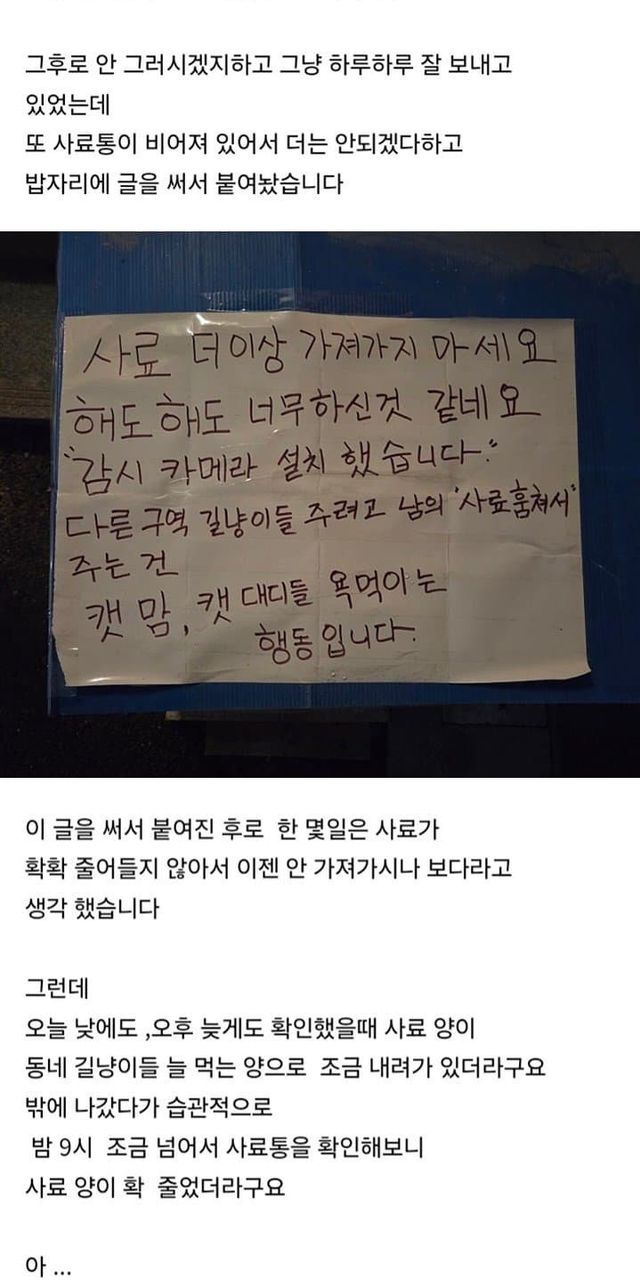 그후로 안 그러시겠지하고 그냥 하루하루 잘 보내고
있었는데
또 사료통이 비어져 있어서 더는 안되겠다하고
밥자리에 글을 써서 붙여놨습니다
사료 더이상 가져가지 마세요
해도 해도 너무하신것 같네요
"감시 카메라 설치 했습니다."
다른 구역 길냥이들 주려고 남의 '사료훔쳐서'
주는 건
캣 맘, 캣 대디들 욕먹이는
행동입니다.
이 글을 써서 붙여진 후로 한 몇일은 사료가
확확 줄어들지 않아서 이젠 안 가져가시나 보다라고
생각 했습니다
그런데
오늘 낮에도 ,오후 늦게도 확인했을때 사료 양이
동네 길냥이들 늘 먹는 양으로 조금 내려가 있더라구요
밖에 나갔다가 습관적으로
밤 9시 조금 넘어서 사료통을 확인해보니
사료 양이 확 줄었더라구요
아 ...